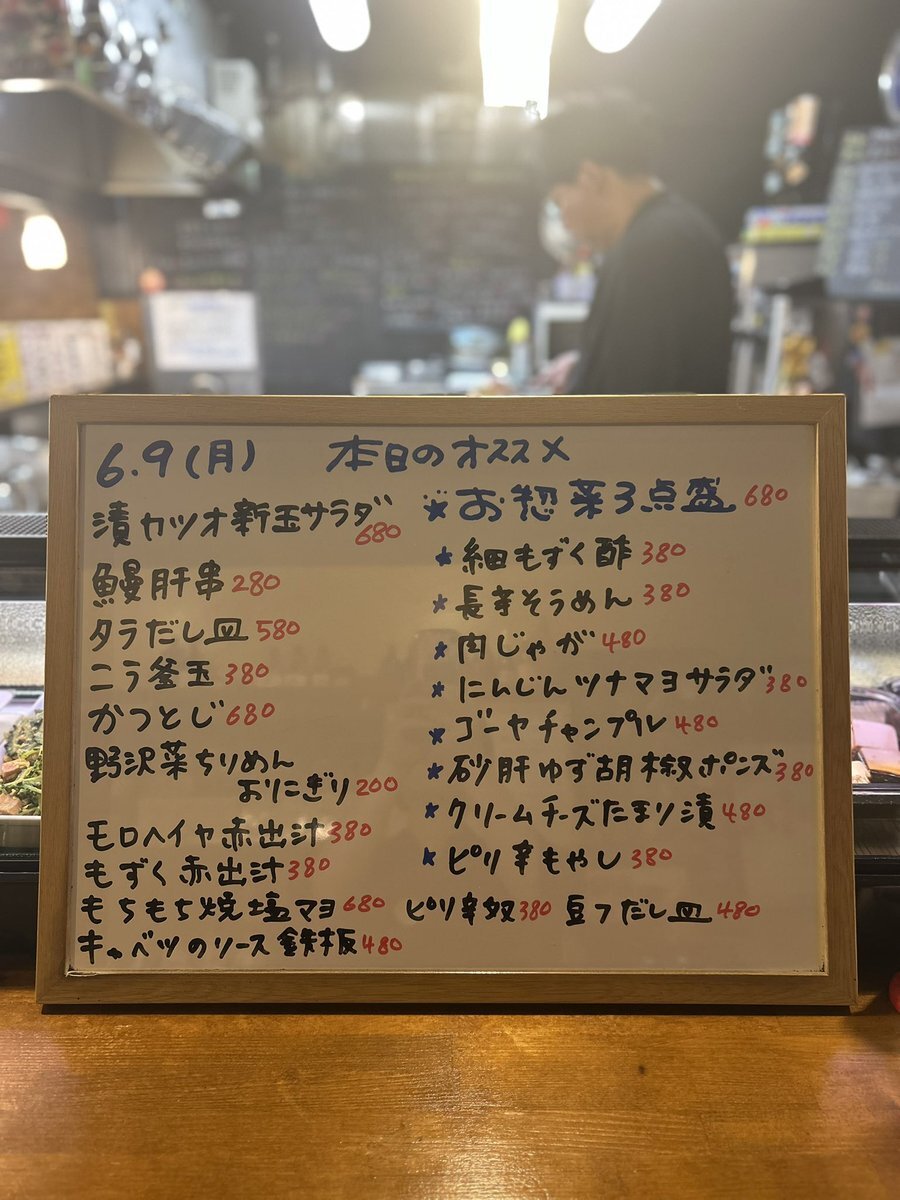 6.9(月) 本日のオススメ
漬カツオ新玉サラダ 680
鰻肝串 280
タラだし皿 580
こう釜玉 380
かつとじ 680
野沢菜ちりめん
おりにぎり 200
モロヘイヤ赤出汁 380
もずく赤出汁 380
もちもち焼塩マヨ 680
キャベツのソース鉄板 480
★お惣菜3点盛 680
★細もずく酢 380
★長芋そうめん 380
★肉じゃが 480
★にんじんツナマヨサラダ 380
★ゴーヤチャンプル 480
★砂肝ゆず胡椒ポンズ 380
★クリームチーズたまり漬 480
★ピリ辛もやし 380
ピリ辛奴 380 豆フだし皿 480